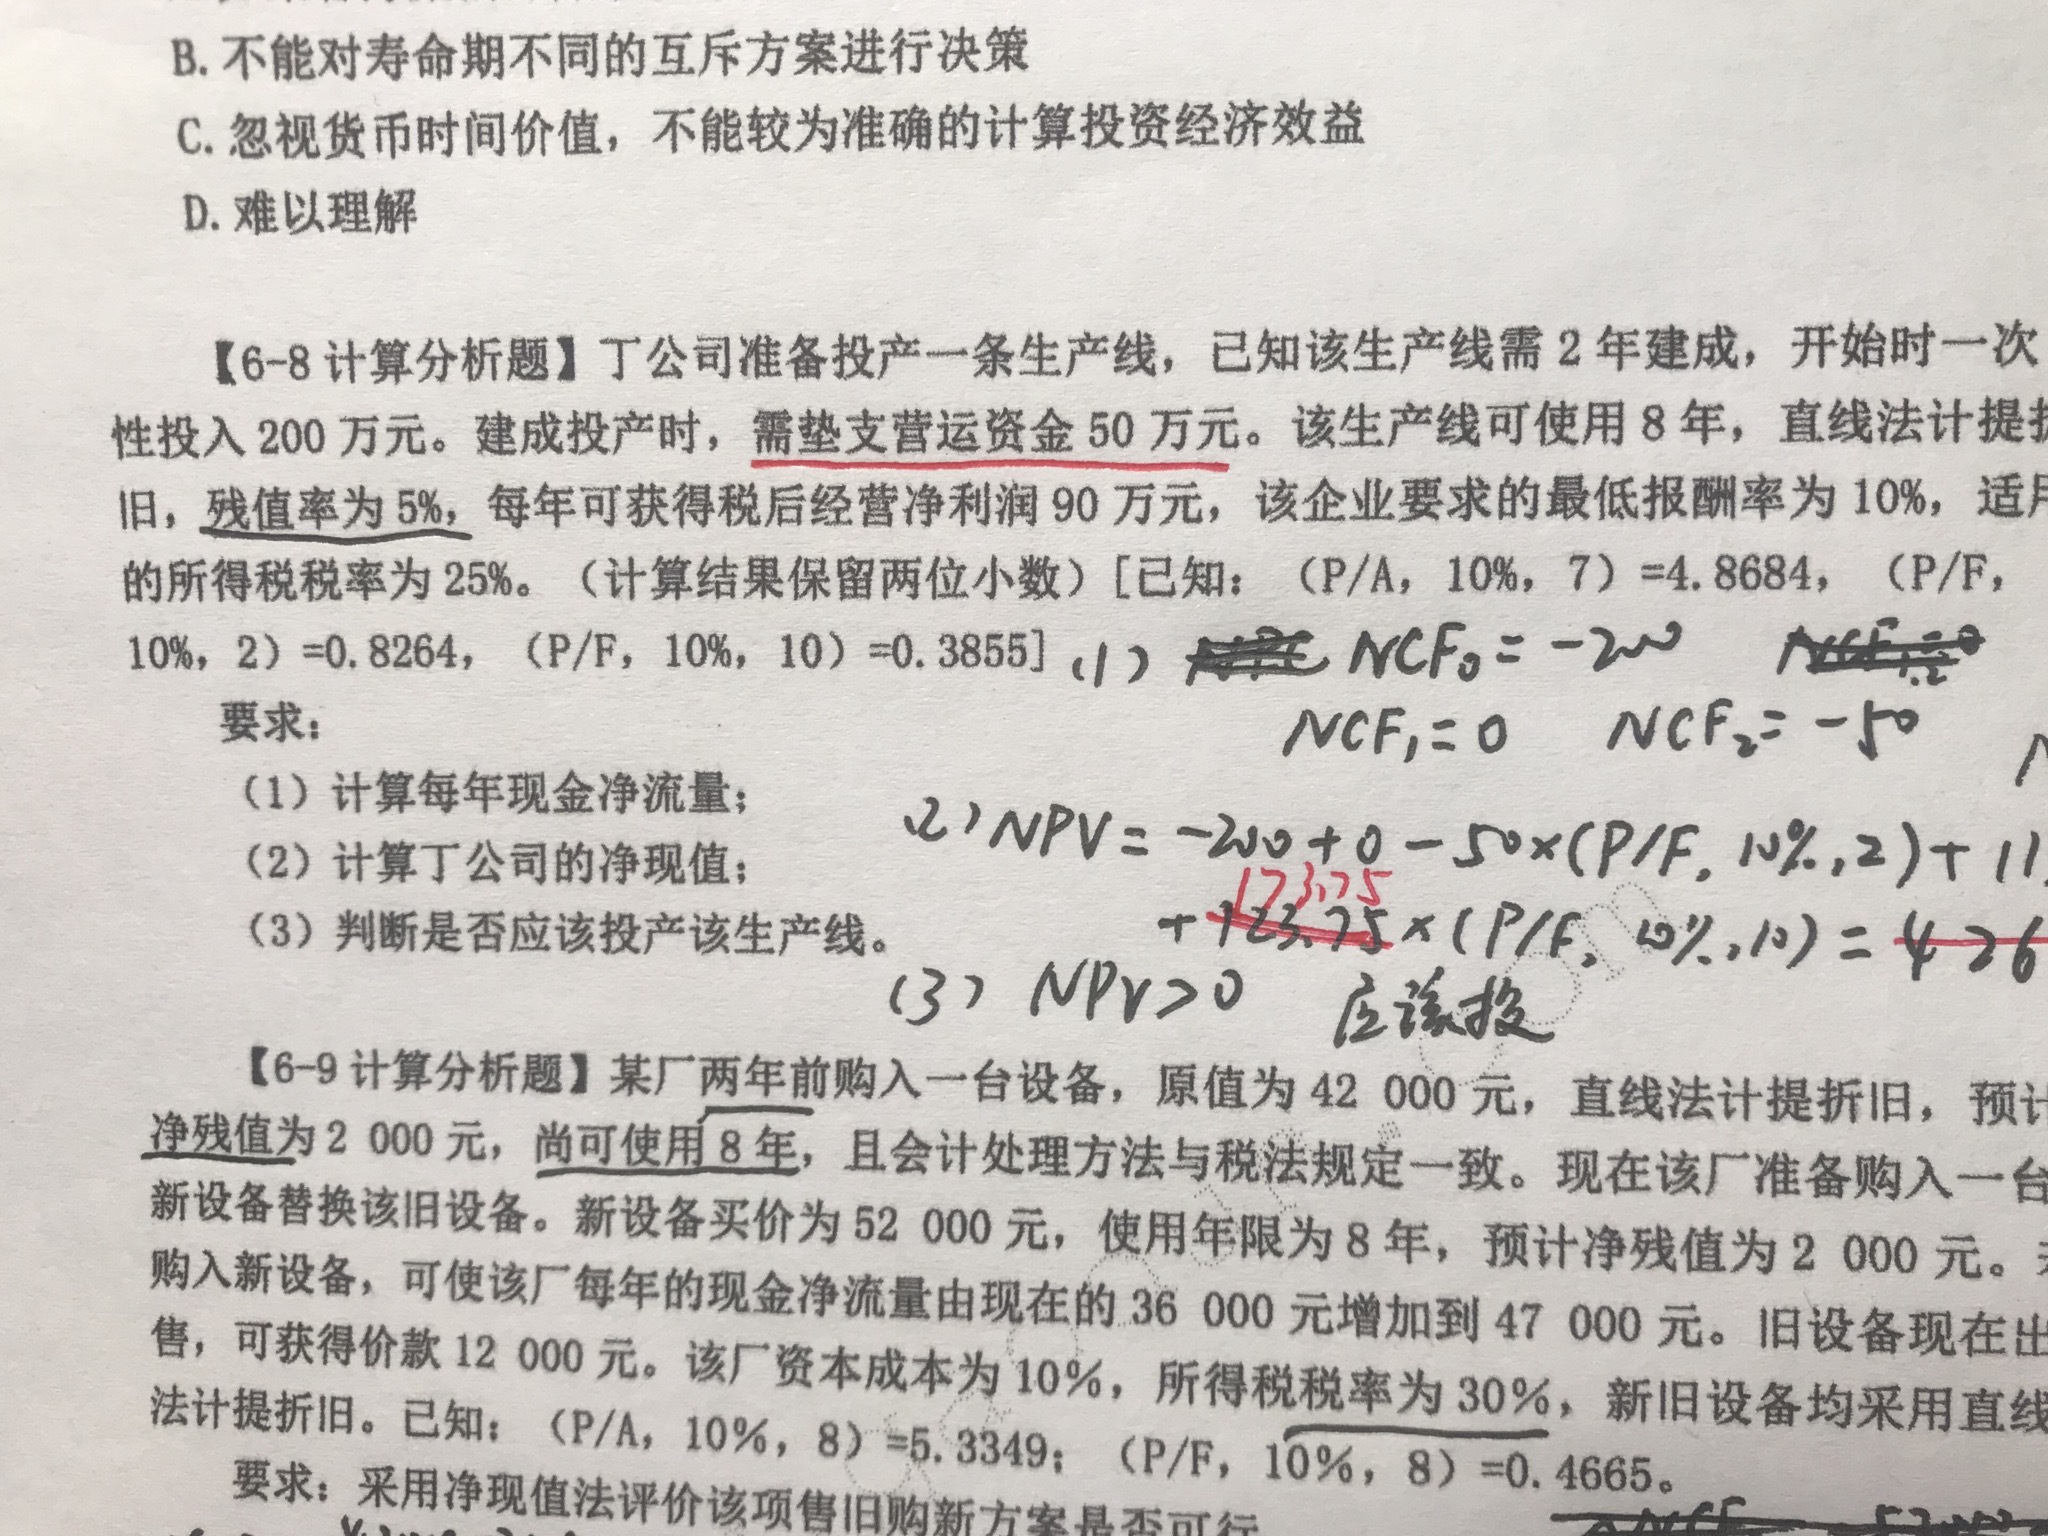 B. 不能对寿命期不同的互斥方案进行决策
C. 忽视货币时间价值，不能较为准确的计算投资经济效益
D. 难以理解
【6-8 计算分析题】丁公司准备投产一条生产线，已知该生产线需 2 年建成，开始时一次
性投入 200 万元。建成投产时，需垫支营运资金 50 万元。该生产线可使用 8 年，直线法计提折
旧，残值率为 5%，每年可获得税后经营净利润 90 万元，该企业要求的最低报酬率为 10%，适用
的所得税税率为 25%。（计算结果保留两位小数）[已知：（P/A，10%，7）=4.8684，（P/F，
10%，2）=0.8264，（P/F，10%，10）=0.3855]
(1) NCF₀ = -200
NCF₁ = 0 NCF₂ = -50
要求：
（1）计算每年现金净流量；
（2）计算丁公司的净现值；
（3）判断是否应该投产该生产线。
(2) NPV = -200 + 0 - 50×(P/F, 10%, 2) + 11
173.75
+ 123.75 ×(P/F, 10%, 10) = 426
(3) NPV > 0 应该投
【6-9 计算分析题】某厂两年前购入一台设备，原值为 42 000 元，直线法计提折旧，预计
净残值为 2 000 元，尚可使用 8 年，且会计处理方法与税法规定一致。现在该厂准备购入一台
新设备替换该旧设备。新设备买价为 52 000 元，使用年限为 8 年，预计净残值为 2 000 元。
购入新设备，可使该厂每年的现金净流量由现在的 36 000 元增加到 47 000 元。旧设备现在出
售，可获得价款 12 000 元。该厂资本成本为 10%，所得税税率为 30%，新旧设备均采用直线
法计提折旧。已知：（P/A，10%，8）=5.3349；（P/F，10%，8）=0.4665。
要求：采用净现值法评价该项售旧购新方案是否可行